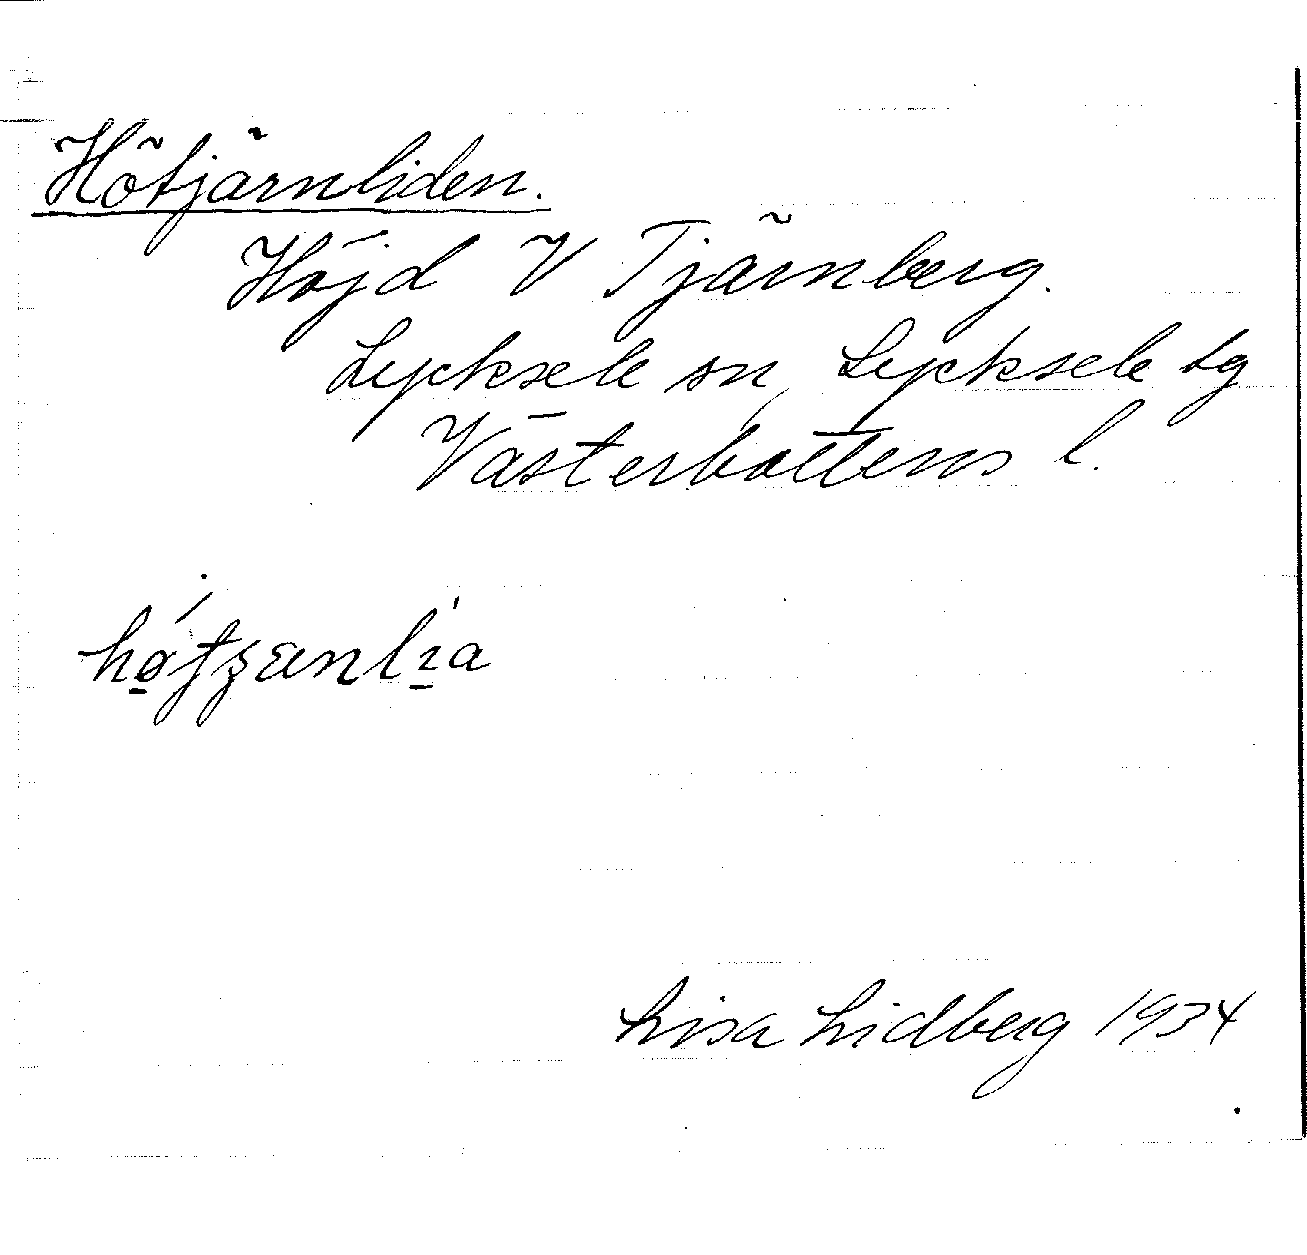 Hötjärnliden.
Höjd V Tjärnberg.
Lycksele sn, Lycksele tg
Västerbottens l.
Lisa Lidberg 1934